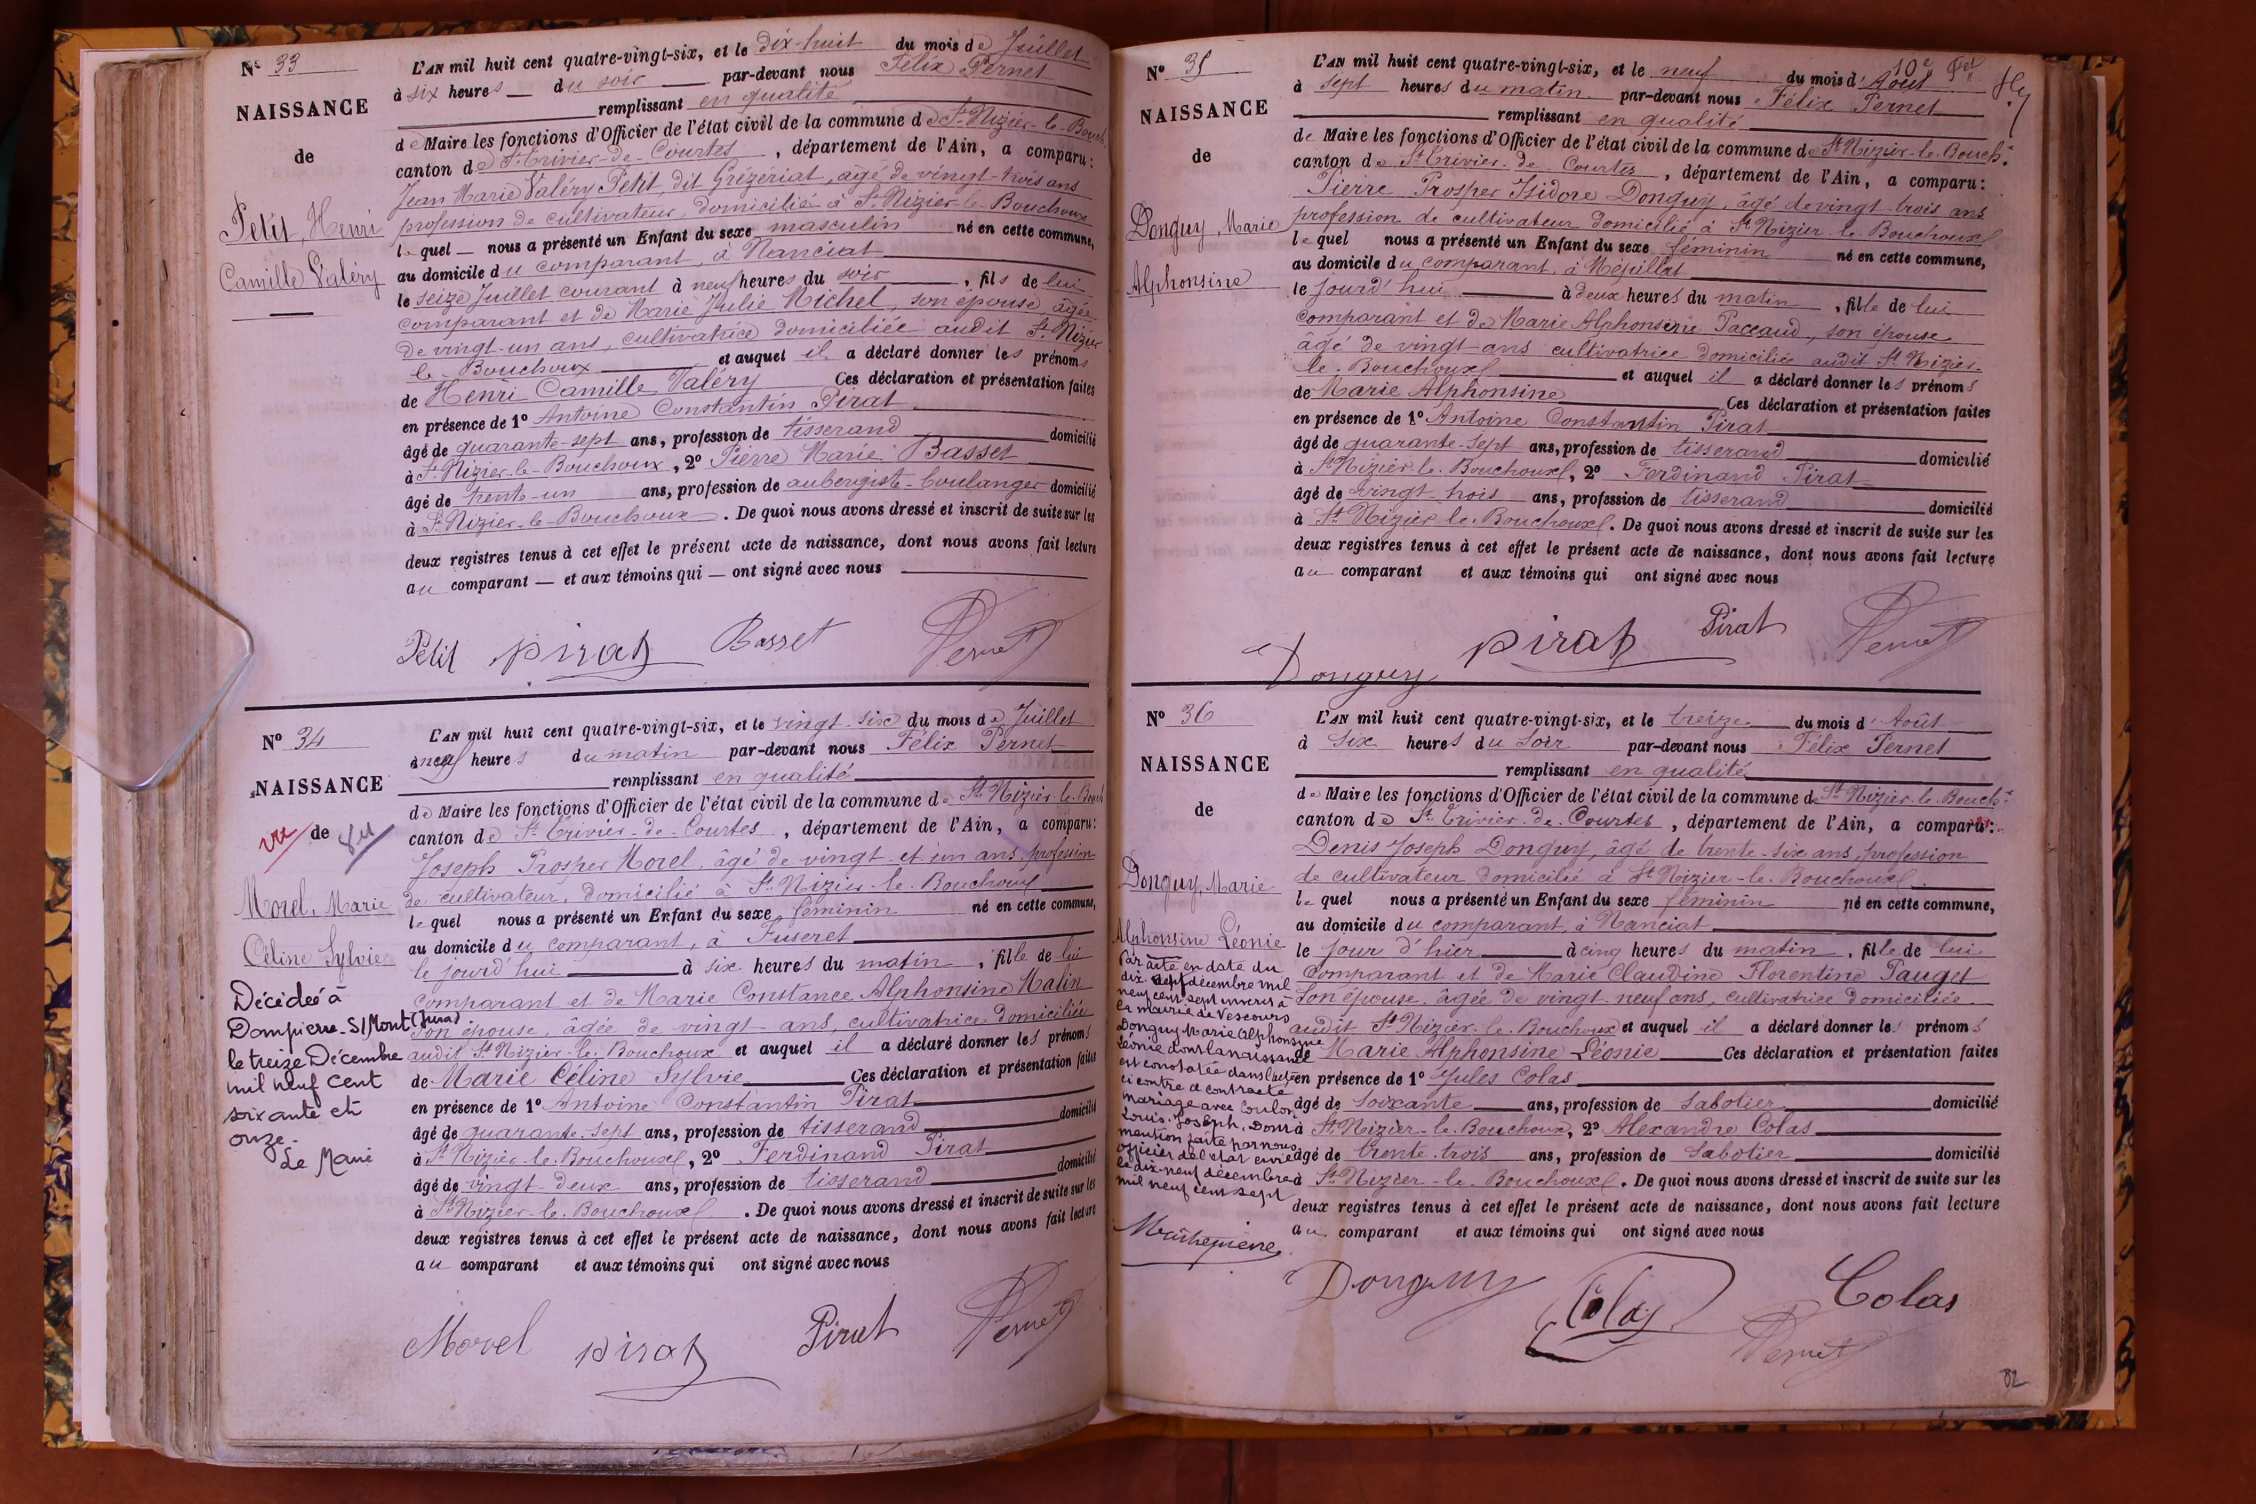 N° 33
NAISSANCE
de
Petit, Henri
Camille Valéry
L'AN mil huit cent quatre-vingt-six, et le dix-huit du mois de Juillet
à six heures du soir par-devant nous Félix Pernet
remplissant en qualité
de Maire les fonctions d'Officier de l'état civil de la commune de St Nizier-le-Bouch
canton de St Trivier-de-Courtes, département de l'Ain, a comparu:
Jean Marie Valéry Petit, dit Grézeriat, âgé de vingt-trois ans
profession de cultivateur, domicilié à St Nizier-le-Bouchoux
lequel nous a présenté un Enfant du sexe masculin né en cette commune,
au domicile du comparant, à Nanciat
le seize Juillet courant à neuf heures du soir, fils de lui
comparant et de Marie Julie Michel, son épouse âgée
de vingt-un ans, cultivatrice domiciliée audit St Nizier
le-Bouchoux et auquel il a déclaré donner les prénoms
de Henri Camille Valéry Ces déclaration et présentation faites
en présence de 1° Antoine Constantin Pirat
âgé de quarante-sept ans, profession de tisserand domicilié
à St Nizier-le-Bouchoux, 2° Pierre Marie Basset
âgé de trente-un ans, profession de aubergiste-boulanger domicilié
à St Nizier-le-Bouchoux. De quoi nous avons dressé et inscrit de suite sur les
deux registres tenus à cet effet le présent acte de naissance, dont nous avons fait lecture
au comparant — et aux témoins qui — ont signé avec nous
Petit Pirat Basset Pernet
N° 34
NAISSANCE
vu de
Morel, Marie
Céline Sylvie
Décédée à
Dompierre-S/Mont (Jura)
le treize Décembre
mil neuf cent
soixante et
onze.
Le Maire
L'AN mil huit cent quatre-vingt-six, et le vingt-six du mois de Juillet
à neuf heures du matin par-devant nous Félix Pernet
remplissant en qualité
de Maire les fonctions d'Officier de l'état civil de la commune de St Nizier-le-Bouch
canton de St Trivier-de-Courtes, département de l'Ain, a comparu:
Joseph Prosper Morel, âgé de vingt-et-un ans, profession
de cultivateur, domicilié à St Nizier-le-Bouchoux
lequel nous a présenté un Enfant du sexe féminin né en cette commune,
au domicile du comparant, à Fuseret
le jourd'hui à six heures du matin, fille de lui
comparant et de Marie Constance Alphonsine Malin
son épouse, âgée de vingt-ans, cultivatrice domiciliée
audit St Nizier-le-Bouchoux et auquel il a déclaré donner les prénoms
de Marie Céline Sylvie Ces déclaration et présentation faites
en présence de 1° Antoine Constantin Pirat
âgé de quarante-sept ans, profession de tisserand domicilié
à St Nizier-le-Bouchoux, 2° Ferdinand Pirat
âgé de vingt-deux ans, profession de tisserand domicilié
à St Nizier-le-Bouchoux. De quoi nous avons dressé et inscrit de suite sur les
deux registres tenus à cet effet le présent acte de naissance, dont nous avons fait lecture
au comparant et aux témoins qui ont signé avec nous
Morel Pirat Pirat Pernet
10e
N° 35
NAISSANCE
de
Donguy, Marie
Alphonsine
L'AN mil huit cent quatre-vingt-six, et le neuf du mois d'Août
à sept heures du matin par-devant nous Félix Pernet
remplissant en qualité
de Maire les fonctions d'Officier de l'état civil de la commune de St Nizier-le-Bouch.
canton de St Trivier-de-Courtes, département de l'Ain, a comparu:
Pierre Prosper Isidore Donguy, âgé de vingt-trois ans
profession de cultivateur domicilié à St Nizier-le-Bouchoux
lequel nous a présenté un Enfant du sexe féminin né en cette commune,
au domicile du comparant, à Mépillat
le jourd'hui à deux heures du matin, fille de lui
comparant et de Marie Alphonsine Paccaud, son épouse
âgé de vingt-ans cultivatrice domiciliée audit St Nizier-
le-Bouchoux et auquel il a déclaré donner les prénoms
de Marie Alphonsine Ces déclaration et présentation faites
en présence de 1° Antoine Constantin Pirat
âgé de quarante-sept ans, profession de tisserand domicilié
à St Nizier-le-Bouchoux, 2° Ferdinand Pirat
âgé de vingt-trois ans, profession de tisserand domicilié
à St Nizier-le-Bouchoux. De quoi nous avons dressé et inscrit de suite sur les
deux registres tenus à cet effet le présent acte de naissance, dont nous avons fait lecture
au comparant et aux témoins qui ont signé avec nous
Donguy Pirat Pirat Pernet
N° 36
NAISSANCE
de
Donguy, Marie
Alphonsine Léonie
Par acte en date du
dix-sept décembre mil
neuf cent sept inscrit à
la mairie de Vescours
Donguy Marie Alphonsine
Léonie dont la naissance
est constatée dans l'acte
ci contre a contracté
mariage avec Coulon
Louis-Joseph, Dont
mention faite par nous
officier de l'état civil
le dix-neuf décembre
mil neuf cent sept
L'AN mil huit cent quatre-vingt-six, et le treize du mois d'Août
à six heures du soir par-devant nous Félix Pernet
remplissant en qualité
de Maire les fonctions d'Officier de l'état civil de la commune de St Nizier-le-Bouch.
canton de St Trivier-de-Courtes, département de l'Ain, a comparu:
Denis Joseph Donguy, âgé de trente-six ans, profession
de cultivateur domicilié à St Nizier-le-Bouchoux
lequel nous a présenté un Enfant du sexe féminin né en cette commune,
au domicile du comparant, à Nanciat
le jour d'hier à cinq heures du matin, fille de lui
comparant et de Marie Claudine Florentine Pauget
son épouse, âgée de vingt-neuf ans, cultivatrice domiciliée
audit St Nizier-le-Bouchoux et auquel il a déclaré donner les prénoms
de Marie Alphonsine Léonie Ces déclaration et présentation faites
en présence de 1° Jules Colas
âgé de soixante ans, profession de sabotier domicilié
à St Nizier-le-Bouchoux, 2° Alexandre Colas
âgé de trente-trois ans, profession de sabotier domicilié
à St Nizier-le-Bouchoux. De quoi nous avons dressé et inscrit de suite sur les
deux registres tenus à cet effet le présent acte de naissance, dont nous avons fait lecture
au comparant et aux témoins qui ont signé avec nous
Donguy Colas Colas
Pernet
82